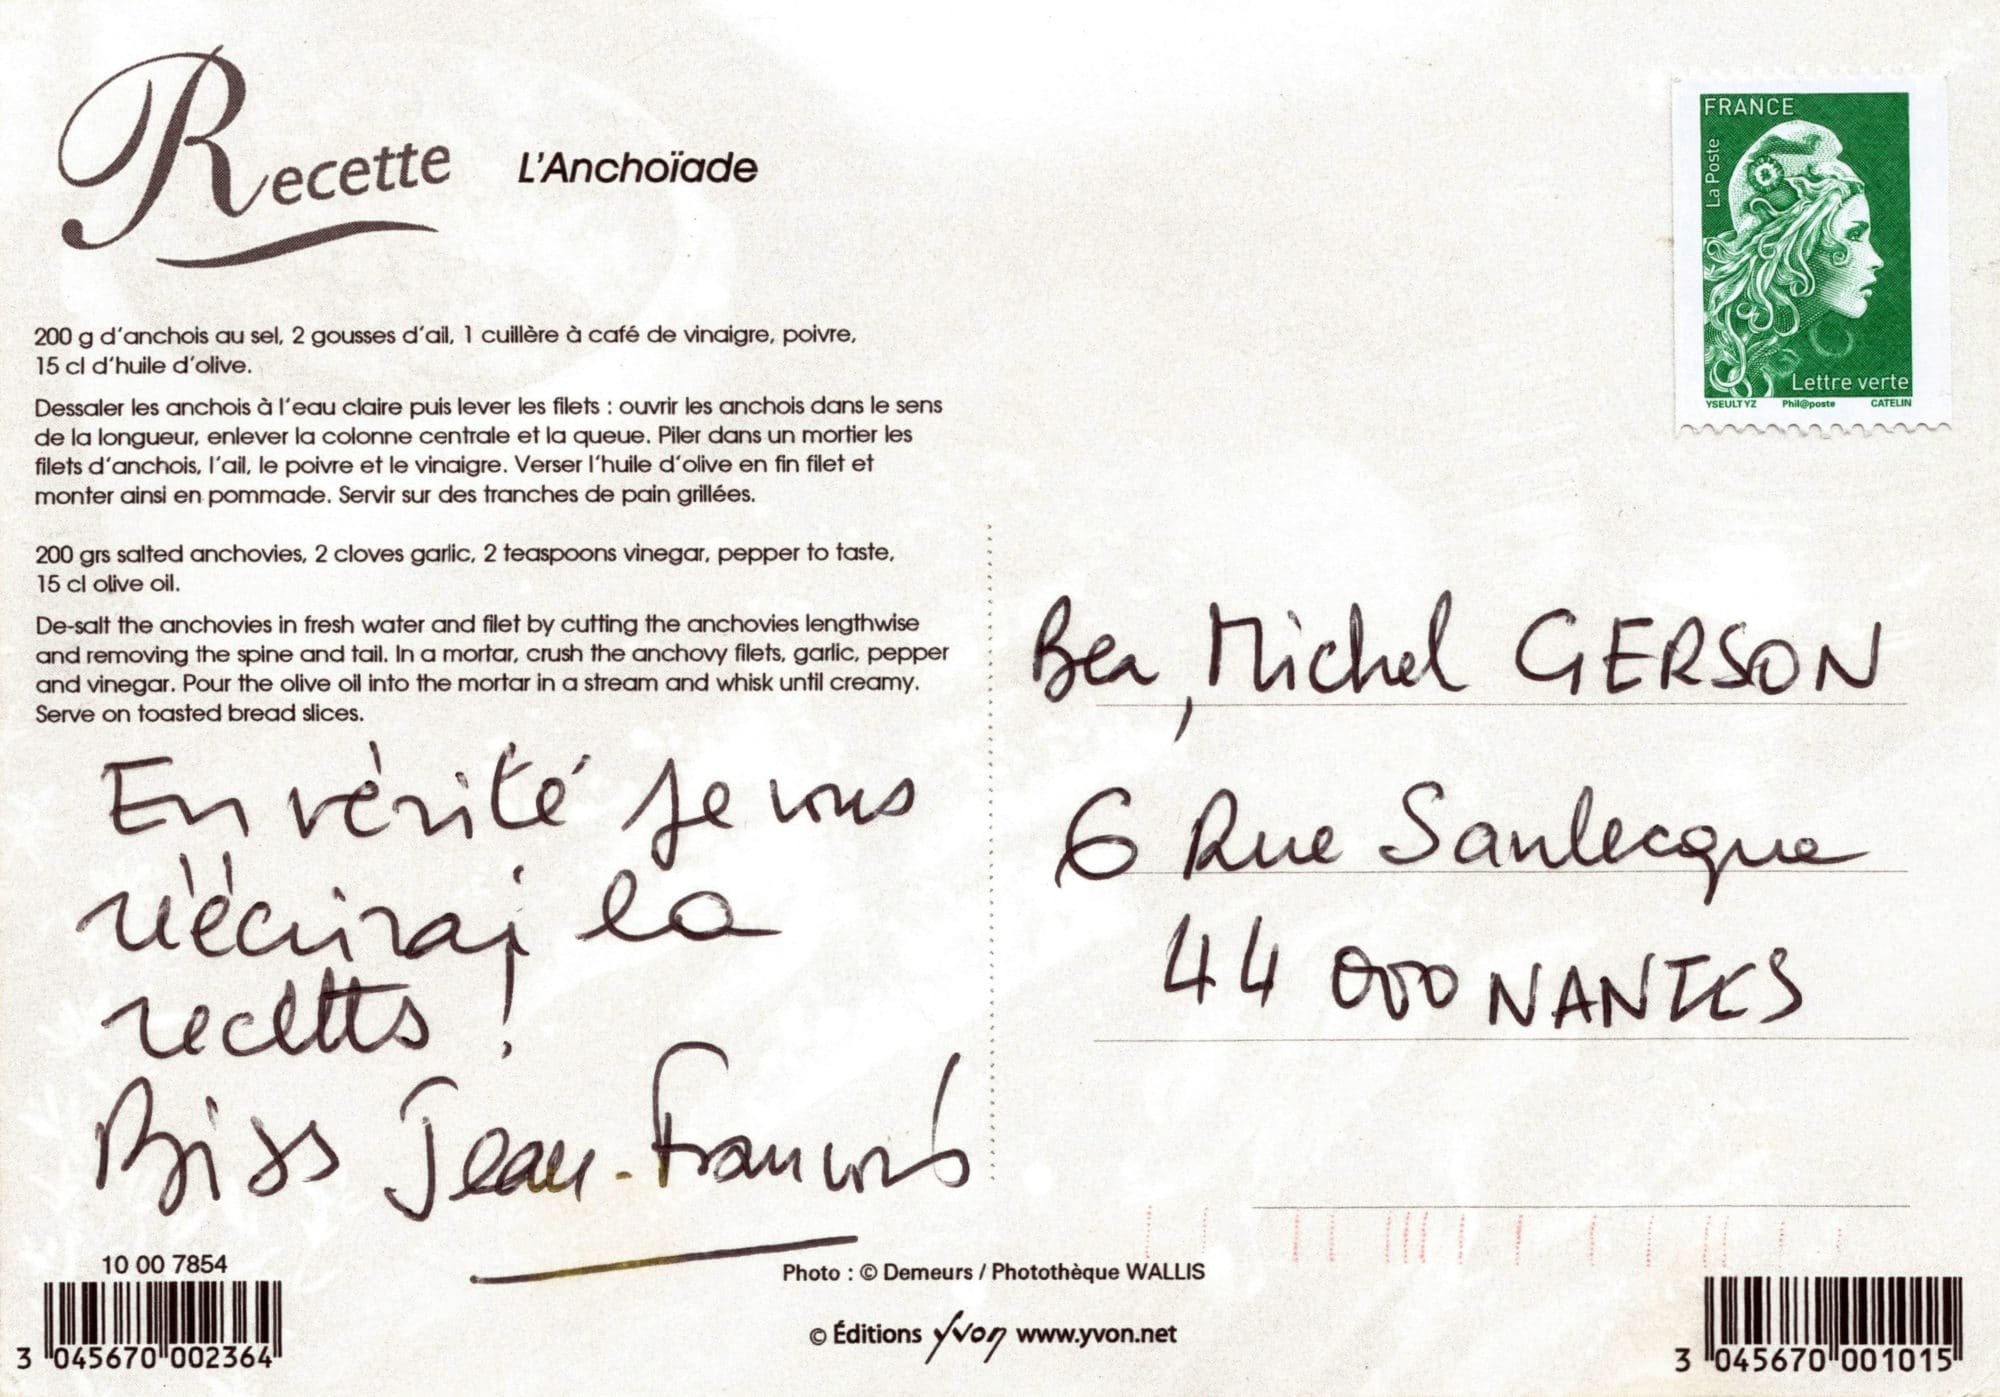 Recette L'Anchoïade
FRANCE
La Poste
Lettre verte
YSEULT YZ Phil@poste CATELIN
200 g d'anchois au sel, 2 gousses d'ail, 1 cuillère à café de vinaigre, poivre,
15 cl d'huile d'olive.
Dessaler les anchois à l'eau claire puis lever les filets : ouvrir les anchois dans le sens
de la longueur, enlever la colonne centrale et la queue. Piler dans un mortier les
filets d'anchois, l'ail, le poivre et le vinaigre. Verser l'huile d'olive en fin filet et
monter ainsi en pommade. Servir sur des tranches de pain grillées.
200 grs salted anchovies, 2 cloves garlic, 2 teaspoons vinegar, pepper to taste,
15 cl olive oil.
De-salt the anchovies in fresh water and filet by cutting the anchovies lengthwise
and removing the spine and tail. In a mortar, crush the anchovy filets, garlic, pepper
and vinegar. Pour the olive oil into the mortar in a stream and whisk until creamy.
Serve on toasted bread slices.
En vérité je vous
réécrirai la
recette !
Jean-François
Bea, Michel GERSON
6 Rue Sanlecque
44 000 NANTES
10 00 7854
3 045670 002364
Photo : © Demeurs / Photothèque WALLIS
© Éditions Yvon www.yvon.net
3 045670 001015